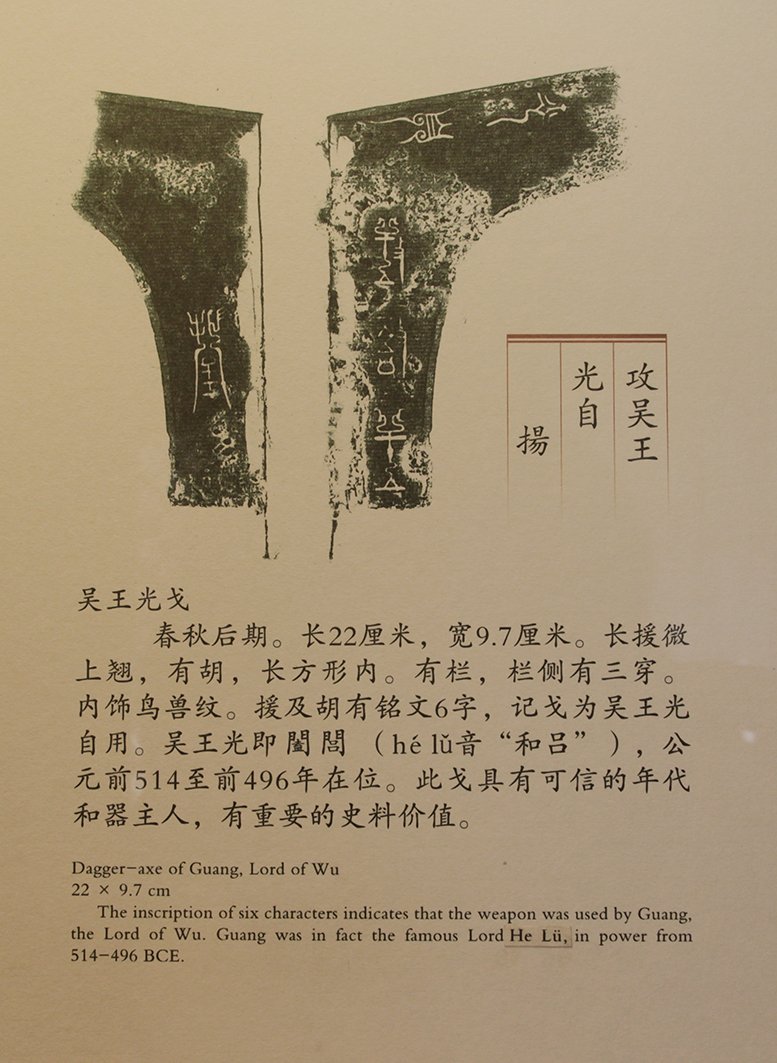 攻吴王
光自
揚
吴王光戈
春秋后期。长22厘米，宽9.7厘米。长援微
上翘，有胡，长方形内。有栏，栏侧有三穿。
内饰鸟兽纹。援及胡有铭文6字，记戈为吴王光
自用。吴王光即闔閭（hé lǔ音“和吕”），公
元前514至前496年在位。此戈具有可信的年代
和器主人，有重要的史料价值。
Dagger-axe of Guang, Lord of Wu
22 × 9.7 cm
The inscription of six characters indicates that the weapon was used by Guang,
the Lord of Wu. Guang was in fact the famous Lord He Lü, in power from
514-496 BCE.